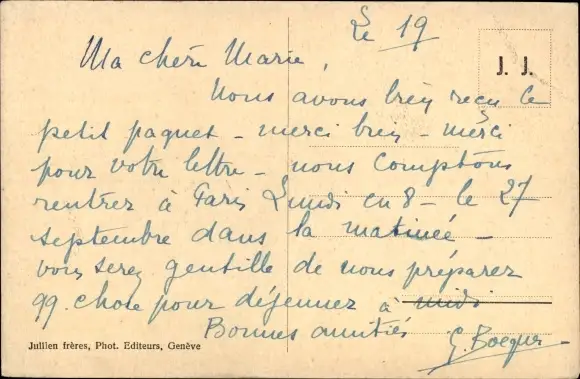 Le 19
J. J.
Ma chère Marie,
Nous avons bien reçu le
petit paquet - merci bien - merci
pour votre lettre - nous comptons
rentrer à Paris Lundi en 8 - le 27
septembre dans la matinée -
vous serez gentille de nous préparer
qq. chose pour déjeuner à midi
Bonnes amitiés
G.
Jullien frères, Phot. Editeurs, Genève